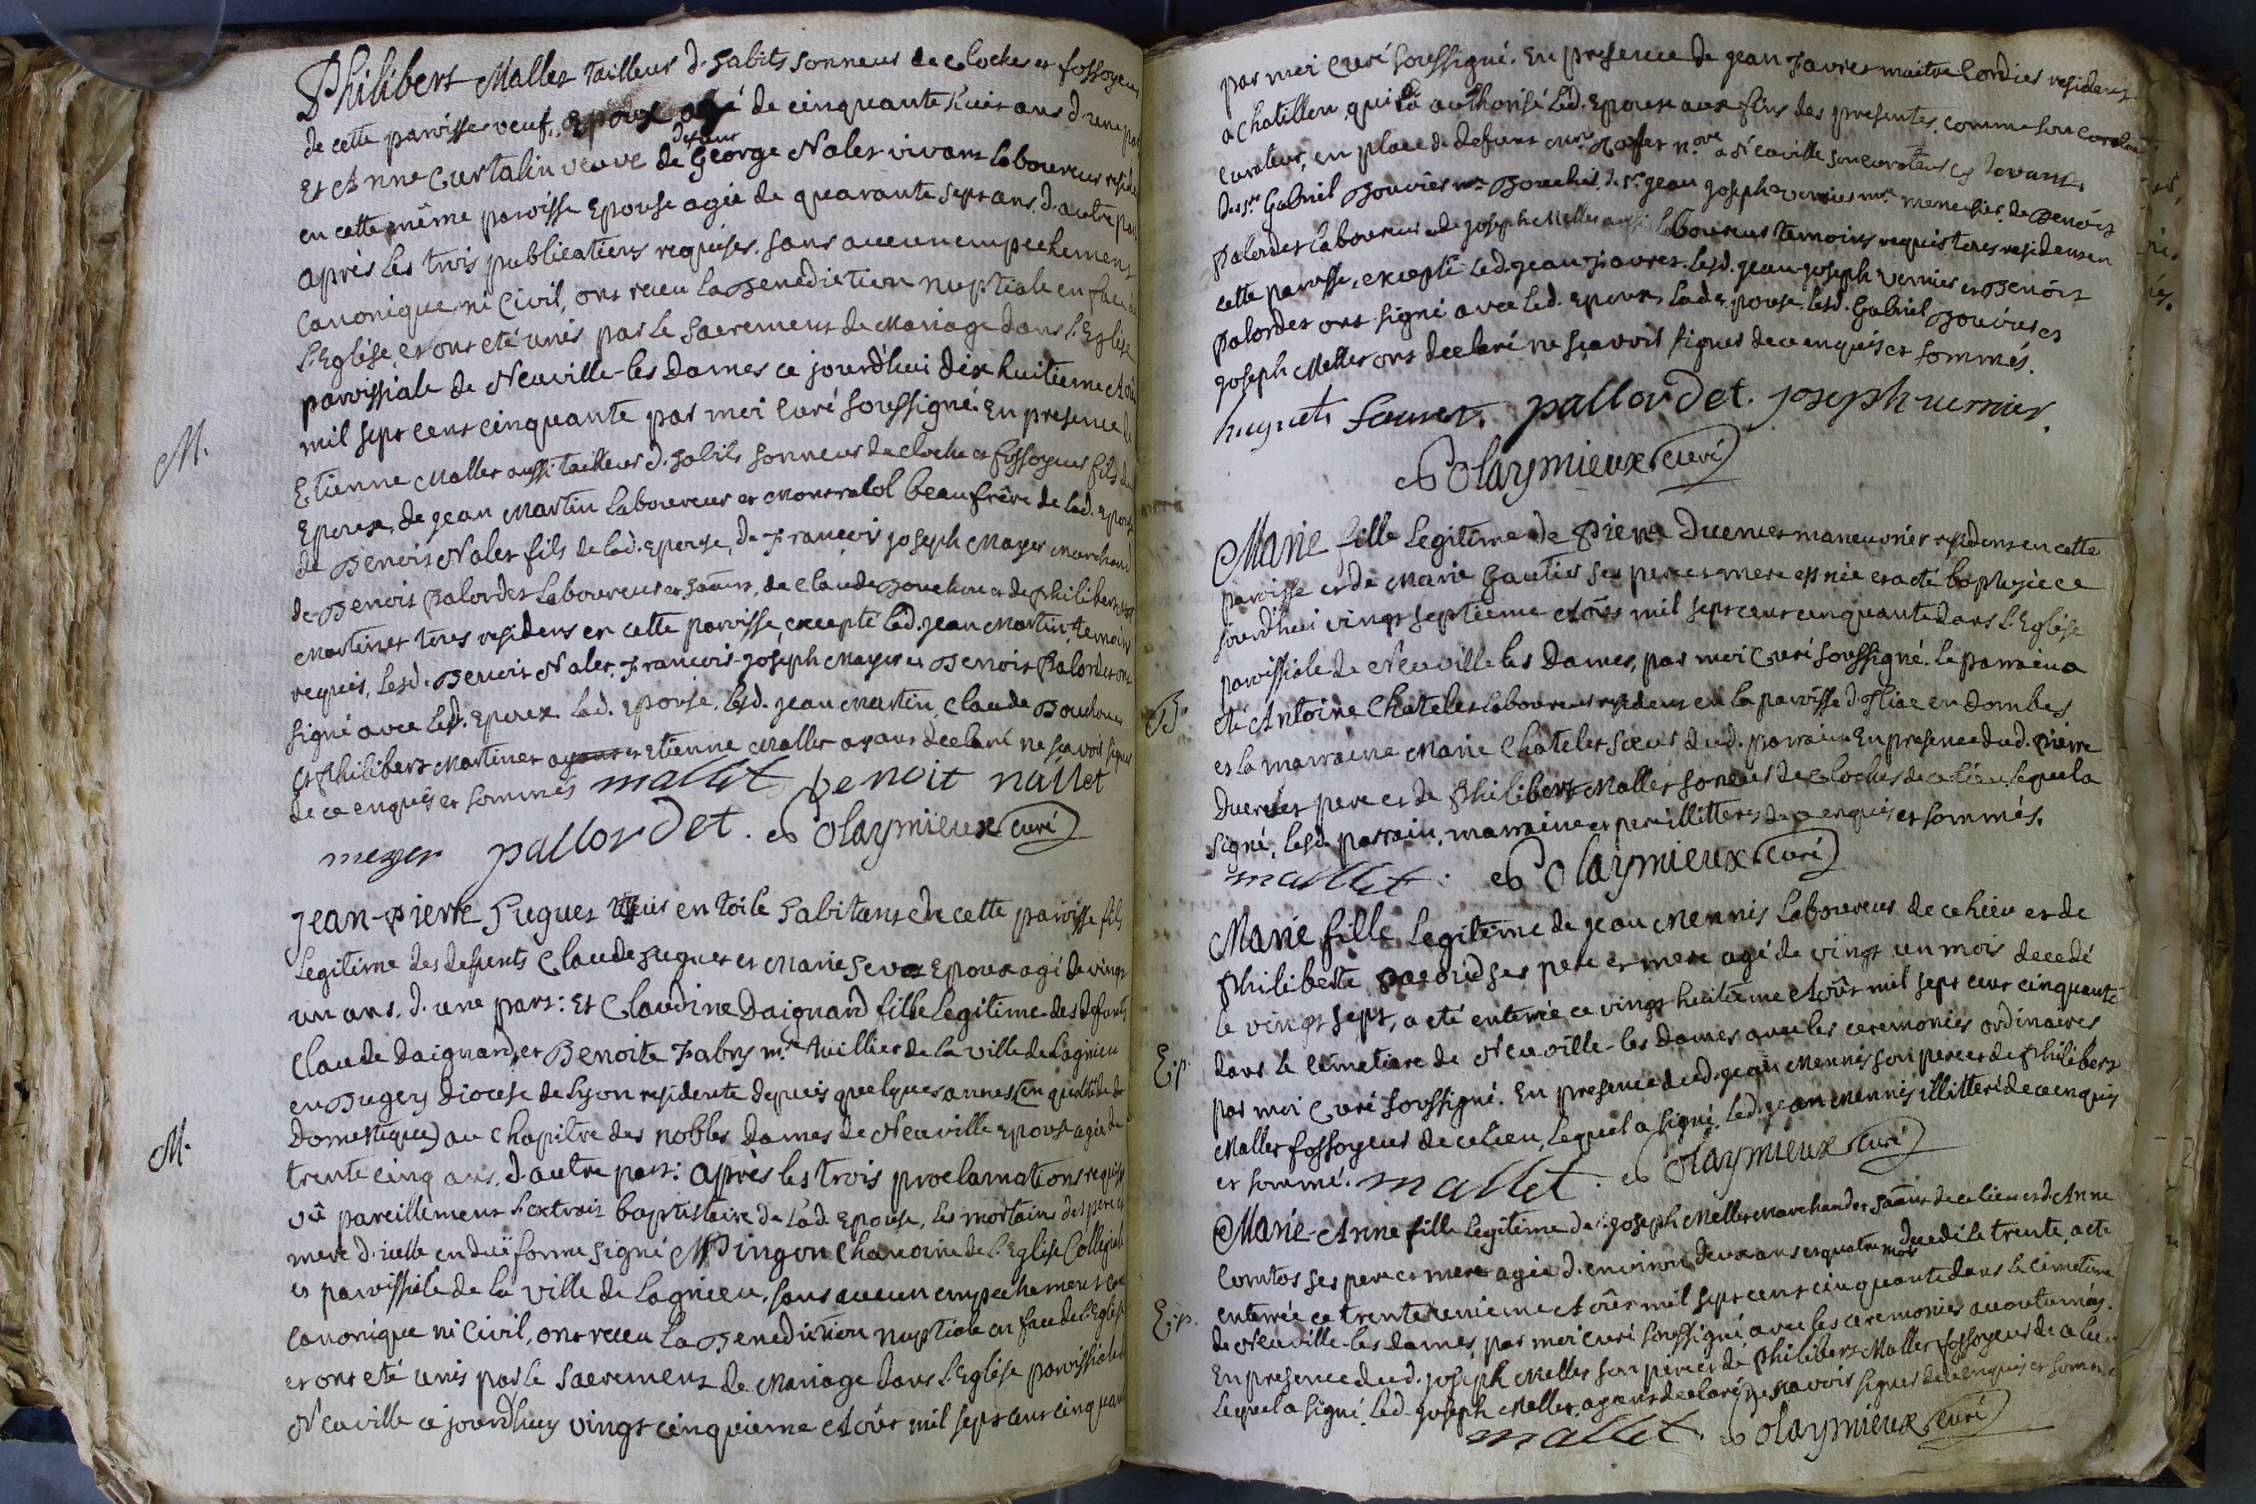 Philibert Mallet tailleur d'habits sonneur de cloches et fossoyeur
de cette paroisse veuf, Epoux agé de cinquante huit ans d'une par
Et Anne Curtalin veuve de defunt George Nalet vivant laboureur reside
en cette même paroisse Epouse agée de quarante sept ans, d'autre par
M.
après les trois publications requises, sans aucun empechement
canonique ni civil, ont receu la Benediction nuptiale en face de
l'Eglise, et ont eté unis par le sacrement de Mariage dans l'Eglise
paroissiale de Neuville-les Dames ce jourd'hui dix huitieme Aout
mil sept cent cinquante par moi Curé soussigné. En presence de
Etienne Mallet aussi tailleur d'habits sonneur de cloche et fossoyeur fils dud
Epoux, de Jean Martin laboureur et Montratol beau frère de lad. epouse
de Benoit Nalet fils de lad. epouse, de François Joseph Mayer marchand
de Benoit Palordet laboureur et, de Claude Bouchon et de Philibert
Martinet tous residens en cette paroisse, excepté led. Jean Martin, temoins
requis, lesd. Benoit Nalet, François-Joseph Mayer et Benoit Palordet ont
signé avec led. Epoux. Lad. Epouse, lesd. Jean Martin, Claude Bouchon
et Philibert Martinet et Etienne Mallet ayant declaré ne sçavoir signer
de ce enquis et sommés mallet benoit nallet
meyer pallordet. Olaymieux curé
Jean-Pierre Huguet en toile habitant de cette paroisse fils
Legitime des defunts Claude Huguet et Marie Epoux agé de vingt
un ans, d'une part: Et Claudine Daignard fille Legitime des Defunts
Claude Daignard, et Benoite Fabry de la ville de Lagnieu
en Bugey Diocese de Lyon residente depuis quelques années (en qualité de
M.
Domestique) au Chapitre des nobles Dames de Neuville Epouse agée de
trente cinq ans, d'autre part: après les trois proclamations requises
vû pareillement l'extrait baptistaire de lad. Epouse, les mortaires des pere et
mere d'icelle en duë forme signé Pingon Chanoine de l'Eglise Collegiale
et paroissiale de la ville de Lagnieu, sans aucun empechement
canonique ni civil, ont receu la Benediction nuptiale en face de l'Eglise
et ont eté unis par le sacrement de Mariage dans l'Eglise paroissiale
Neuville ce jourd'huy vingt cinquieme Aoûst mil sept cent cinquan
par moi Curé soussigné. En presence de Jean Favret maitre Cordier resident
a Chatillon, qui a authorisé led. Epoux aux fins des presentes, comme son
curateur, en place de defunt a Neuville son curateur
des Srs Gabriel Bouvier Boucher, de Sr Jean Joseph Vernier de Benoit
Palordet laboureur de Joseph Mellet aussi laboureur temoins requis tous residens en
cette paroisse, excepté led. Jean Favret. Lesd. Jean-Joseph Vernier et Benoit
Palordet ont signé avec led. Epoux, lad. Epouse. Lesd. Gabriel Bouvier et
Joseph Mellet ont declaré ne sçavoir signer de ce enquis et sommés.
huguet. pallordet. joseph vernier.
Olaymieux curé
Marie fille Legitime de Pierre Duenet resident en cette
paroisse et de Marie Gautier ses pere et mere est née et a eté baptisée ce
jourd'hui vingt septieme Aoûst mil sept cent cinquante dans l'Eglise
paroissiale de Neuville les Dames, par moi Curé soussigné. Le parrain a
B.
eté Antoine Chatelet laboureur resident en la paroisse en Dombes
et la marraine Marie Chatelet Sœur dud. parrain En presence dud. Pierre
pere et de Philibert Mallet soneur de cloches de ce lieu, lequel a
signé, lesd. parrain, marraine et pere illitterés de ce enquis et sommés.
mallet. Olaymieux curé
Marie fille Legitime de Jean Mennis laboureur de ce lieu et de
Philiberte ses pere et mere agé de vingt un mois decedé
le vingt sept, a eté enterrée ce vingt huitieme Aoûst mil sept cent cinquante
E.p.
dans le cimetiere de Neuville-les Dames avec les ceremonies ordinaires
par moi Curé soussigné. En presence dud. Jean Mennis son pere et de Philibert
Mallet fossoyeur de ce lieu, lequel a signé, led. Jean Mennis illitteré de ce enquis
et sommé. mallet. Olaymieux curé
Marie-Anne fille Legitime de Joseph Mellet Marchand de ce lieu et d'Anne
Comtos ses pere et mere agée d'environ deux ans et quatre mois decedé le trente, a eté
E.p.
enterrée ce trente unieme Aoûst mil sept cent cinquante dans le cimetiere
de Neuville-les Dames, par moi curé soussigné avec les ceremonies accoutumées.
En presence dud. Joseph Mellet son pere et de Philibert Mallet fossoyeur de ce lieu
Lequel a signé, led. Joseph Mellet, ayant declaré ne sçavoir signer de ce enquis et sommé
mallet. Olaymieux curé